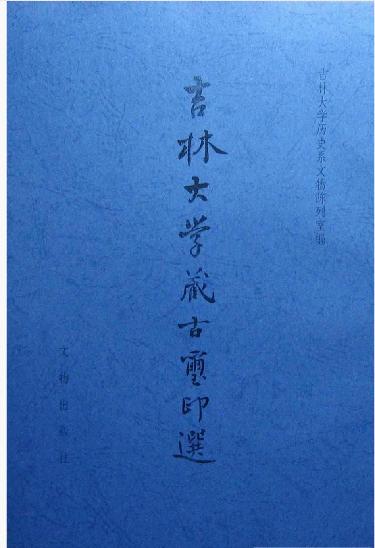 吉林大学历史系文物陈列室编
吉林大学藏古璽印選
文物出版社